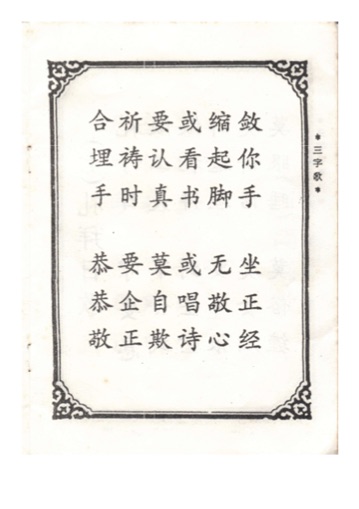 *三字歌*
敛你手 坐正经
缩起脚 无敬心
或看书 或唱诗
要认真 莫自欺
祈祷时 要企正
合埋手 恭恭敬